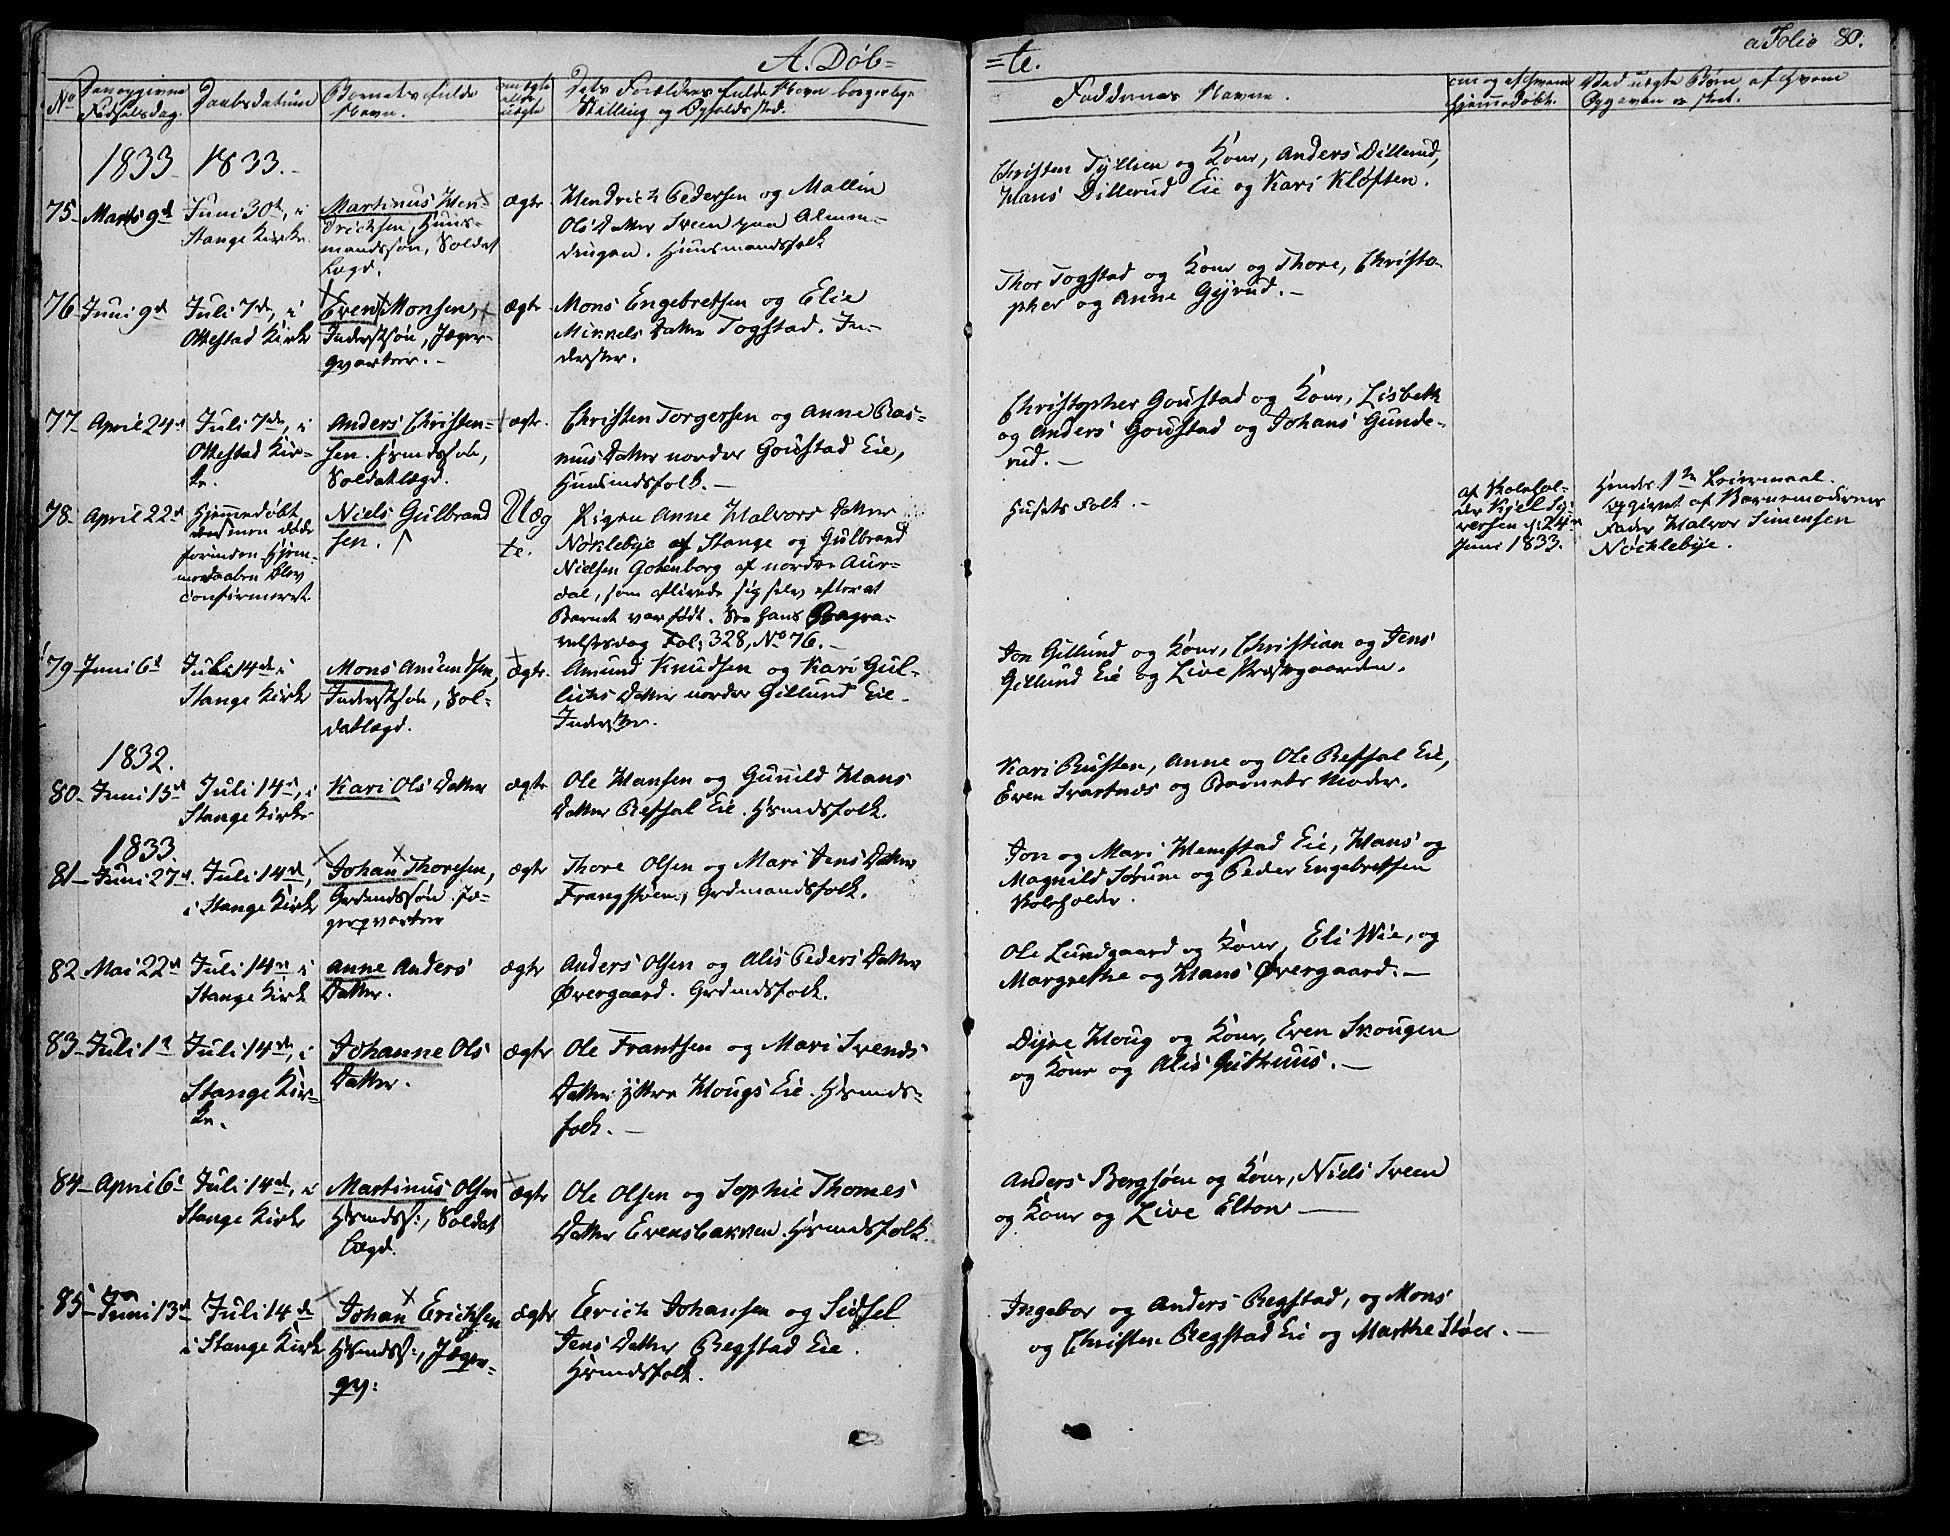 A. Døb=
=te.
a Folio 80.
No
Den opgivne Fødselsdag.
Daabsdatum
Barnets fulde Navn.
om ægte eller uægte
Dets Forældres fulde Navn borgerlige Stilling og Opholdssted.
Faddernes Navne.
om og af hvem hjemmedøbt.
Ved uægte Børn af hvem Opgaven er skeet.
1833 1833.
75- Marts 9d
Juni 30te, i
Stange Kirke.
Martinus Hen=
drichsen, Huus-
mandssøn, Soldat
Lægd.
ægte
Hendrich Pedersen og Mallin
Ols Datter Sveen paa Almin-
dingen. Huusmandsfolk
Christen Tyllien og Kone, Anders Dillerud,
Hans Dillerud Eie og Kari Kløften.
76 Juni 9d
Juli 7de, i
Ottestad Kirke
Even Monsen,
Inderstsøn, Jæger-
qvarteer. -
ægte
Mons Engebretsen og Elie
Mikkels Datter Togstad. In-
derster.
Thor Togstad og Kone og Thore, Christo-
pher og Anne Gyrud. -
77- April 24d
Juli 7de, i
Ottestad Kir-
ke.
Anders Christen=
sen. Hsmdssøn,
Soldatlægd.
ægte.
Christen Torgersen og Anne Ras=
mus Datter nordre Goustad Eie,
Huusmdsfolk. -
Christopher Goustad og Kone, Lisbeth
og Anders Goustad og Johans Gunde-
rud. -
78- April 22d
Hjemmedøbt
men døde
forinden Hjem-
medaaben blev
confirmeret
Niels Gulbrand
sen.
Uæg
te.
Pigen Anne Halvors Datter
Nøklebye af Stange og Gulbrand
Nielsen Gotenborg af nordre Aur-
dal, som aflivede sig selv efterat
Barnet var født. See hans Begra-
velsesdag Fol; 328, No 76. -
Husets Folk. -
af Skolehol-
der Kjel Sy-
versen d: 24de
Juni 1833.
Hendes 1te Leiermaal.
Opgivet af Barnemoderens
Fader Halvor Simensen
Nøcklebye.
79- Juni 6d
Juli 14de i
Stange Kirke
Mons Amundsen,
Inderstsøn, Sol-
datlægd.
ægte.
Amund Knudsen og Kari Gul-
licks Datter nordre Gillund Eie-
Inderster.
Jon Gillund og Kone, Christian og Jens
Gillund Eie og Live Præstegaarden.
1832.
80- Juni 15d
Juli 14d, i
Stange Kirke
Kari Ols Datter
ægte
Ole Hansen og Gunild Hans
Datter Refsal Eie. Hsmdsfolk.
Kari Rusten, Anne og Ole Refsal Eie,
Even Svartnes og Barnets Moder.
1833.
81- Juni 27d.
Juli 14d,
i Stange Kirke
Johan Thoresen,
Grdmdssøn. Jæ-
gerqvarteer
ægte
Thore Olsen og Mari Jens Datter
Frangstøen, Grdmandsfolk.
Jon og Mari Hemstad Eie, Hans og
Magnild Sørum og Peder Engebretsen
Skoleholder.
82 Mai 22d
Juli 14de i
Stange Kirk
Anne Anders
Datter.
ægte
Anders Olsen og Alis Peders Datter
Øvergaard. Grdmdsfolk.
Ole Lundgaard og Kone, Eli Wie, og
Margrethe og Hans Øvergaard. -
83- Juli 1te
Juli 14de, i
Stange Kir-
ke.
Johanne Ols
Datter.
ægte
Ole Frantsen og Mari Svends
Datter yttre Hougs Eie. Hsmds-
folk. -
Dyre Houg og Kone, Even Skougen
og Kone og Alis Guthuus. -
84- April 6d
Juli 14d, i
Stange Kirke
Martinus Olsen
Hsmdss:, Soldat
Lægd.
ægte
Ole Olsen og Sophie Thomes
Datter Evensbakken. Hsmdsfolk.
Anders Bergsøen og Kone, Niels Sveen
og Kone og Live Elton -
85- Juni 13d
Juli 14de
i Stange Kirk
Johan Erichsen
Hsmdss:, Jæger-
qv:
ægte
Erich Johansen og Sidsel
Jens Datter Regstad Eie.
Hsmdsfolk.
Ingebor og Anders Regstad, og Mons
og Christen Regstad Eie og Marthe Støer. -